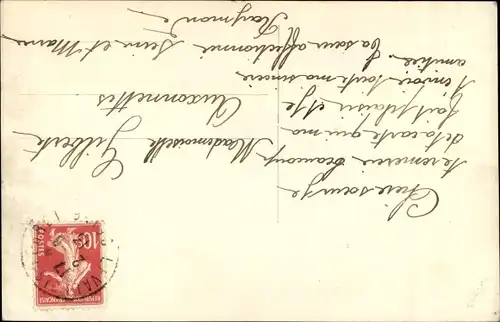 Chère sœurge
te remercie beaucoup
de ta carte qui ma
fait plaisir et je
t'envoie toute ma sincère
amitiée.
Ta sœur affectionnée
Raymonde
Seine et Marne
Mademoiselle Gilberte
Auxonnettes
10c
POSTES
RÉPUBLIQUE FRANÇAISE